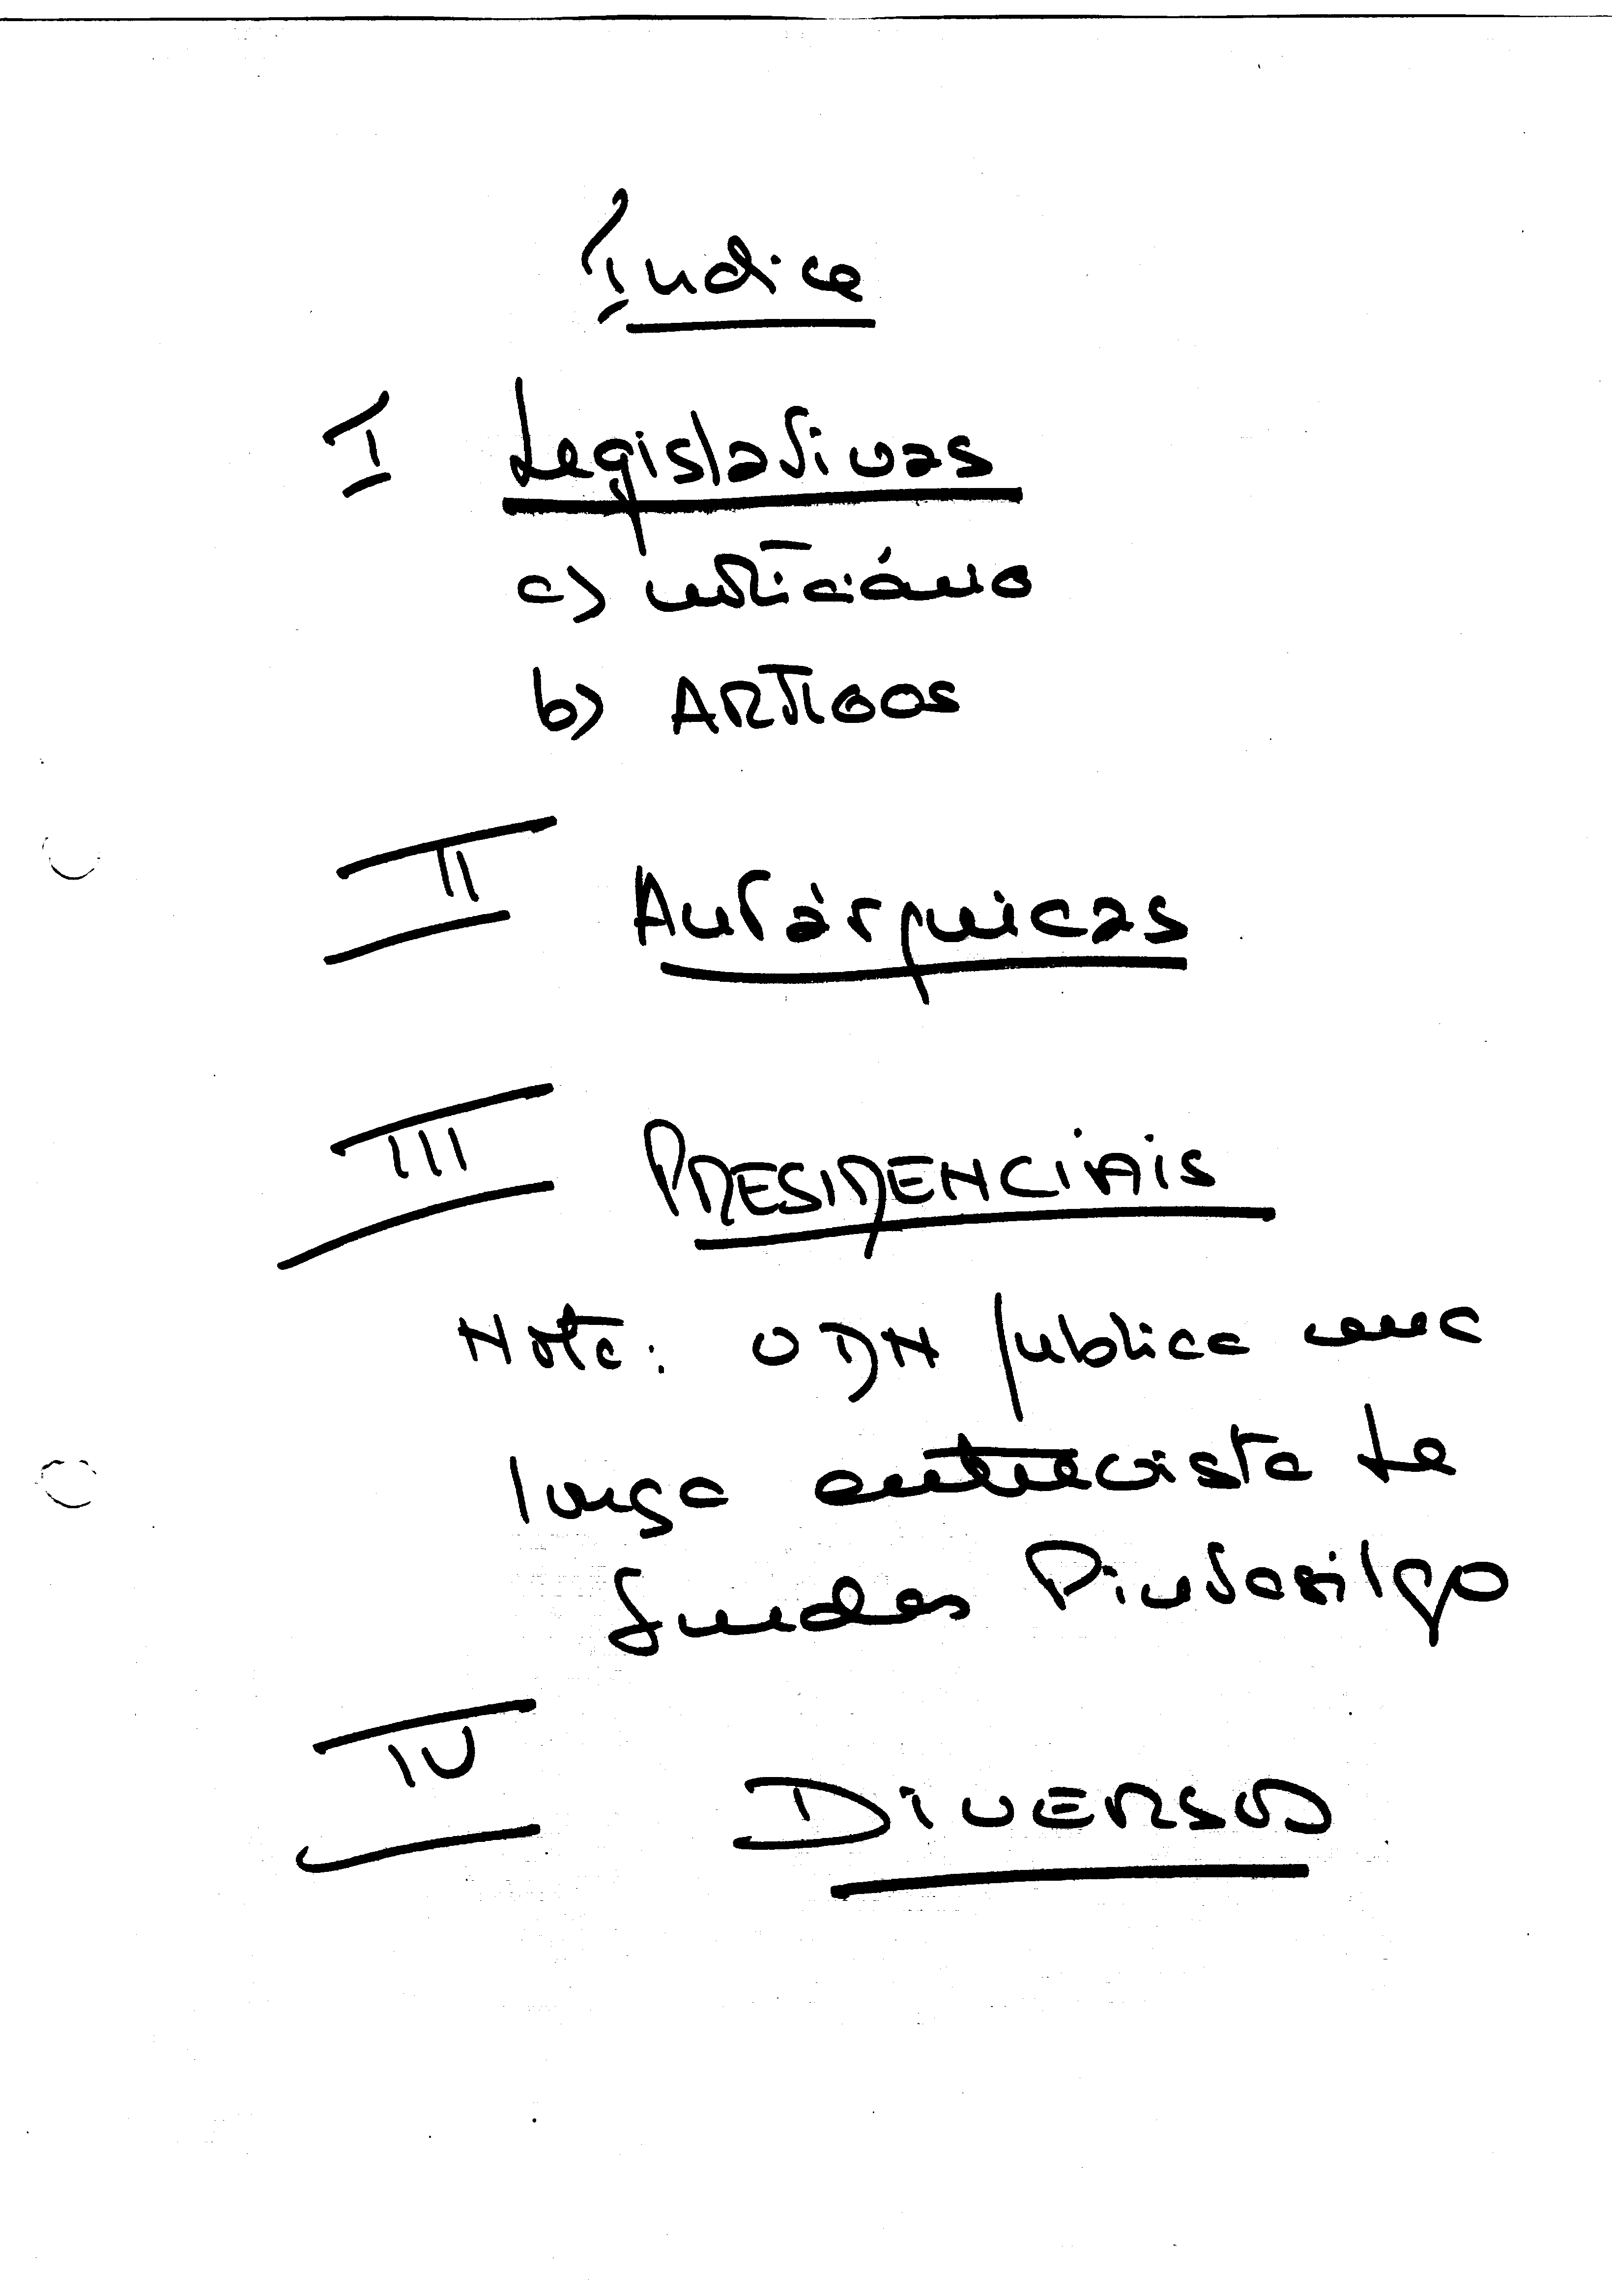 Índice
I Legislativas
a) noticiário
b) ARTIGOS
II Autárquicas
III PRESIDENCIAIS
Nota: O DN publica uma
longa entrevista de
Lurdes Pintasilgo
IV DIVERSOS